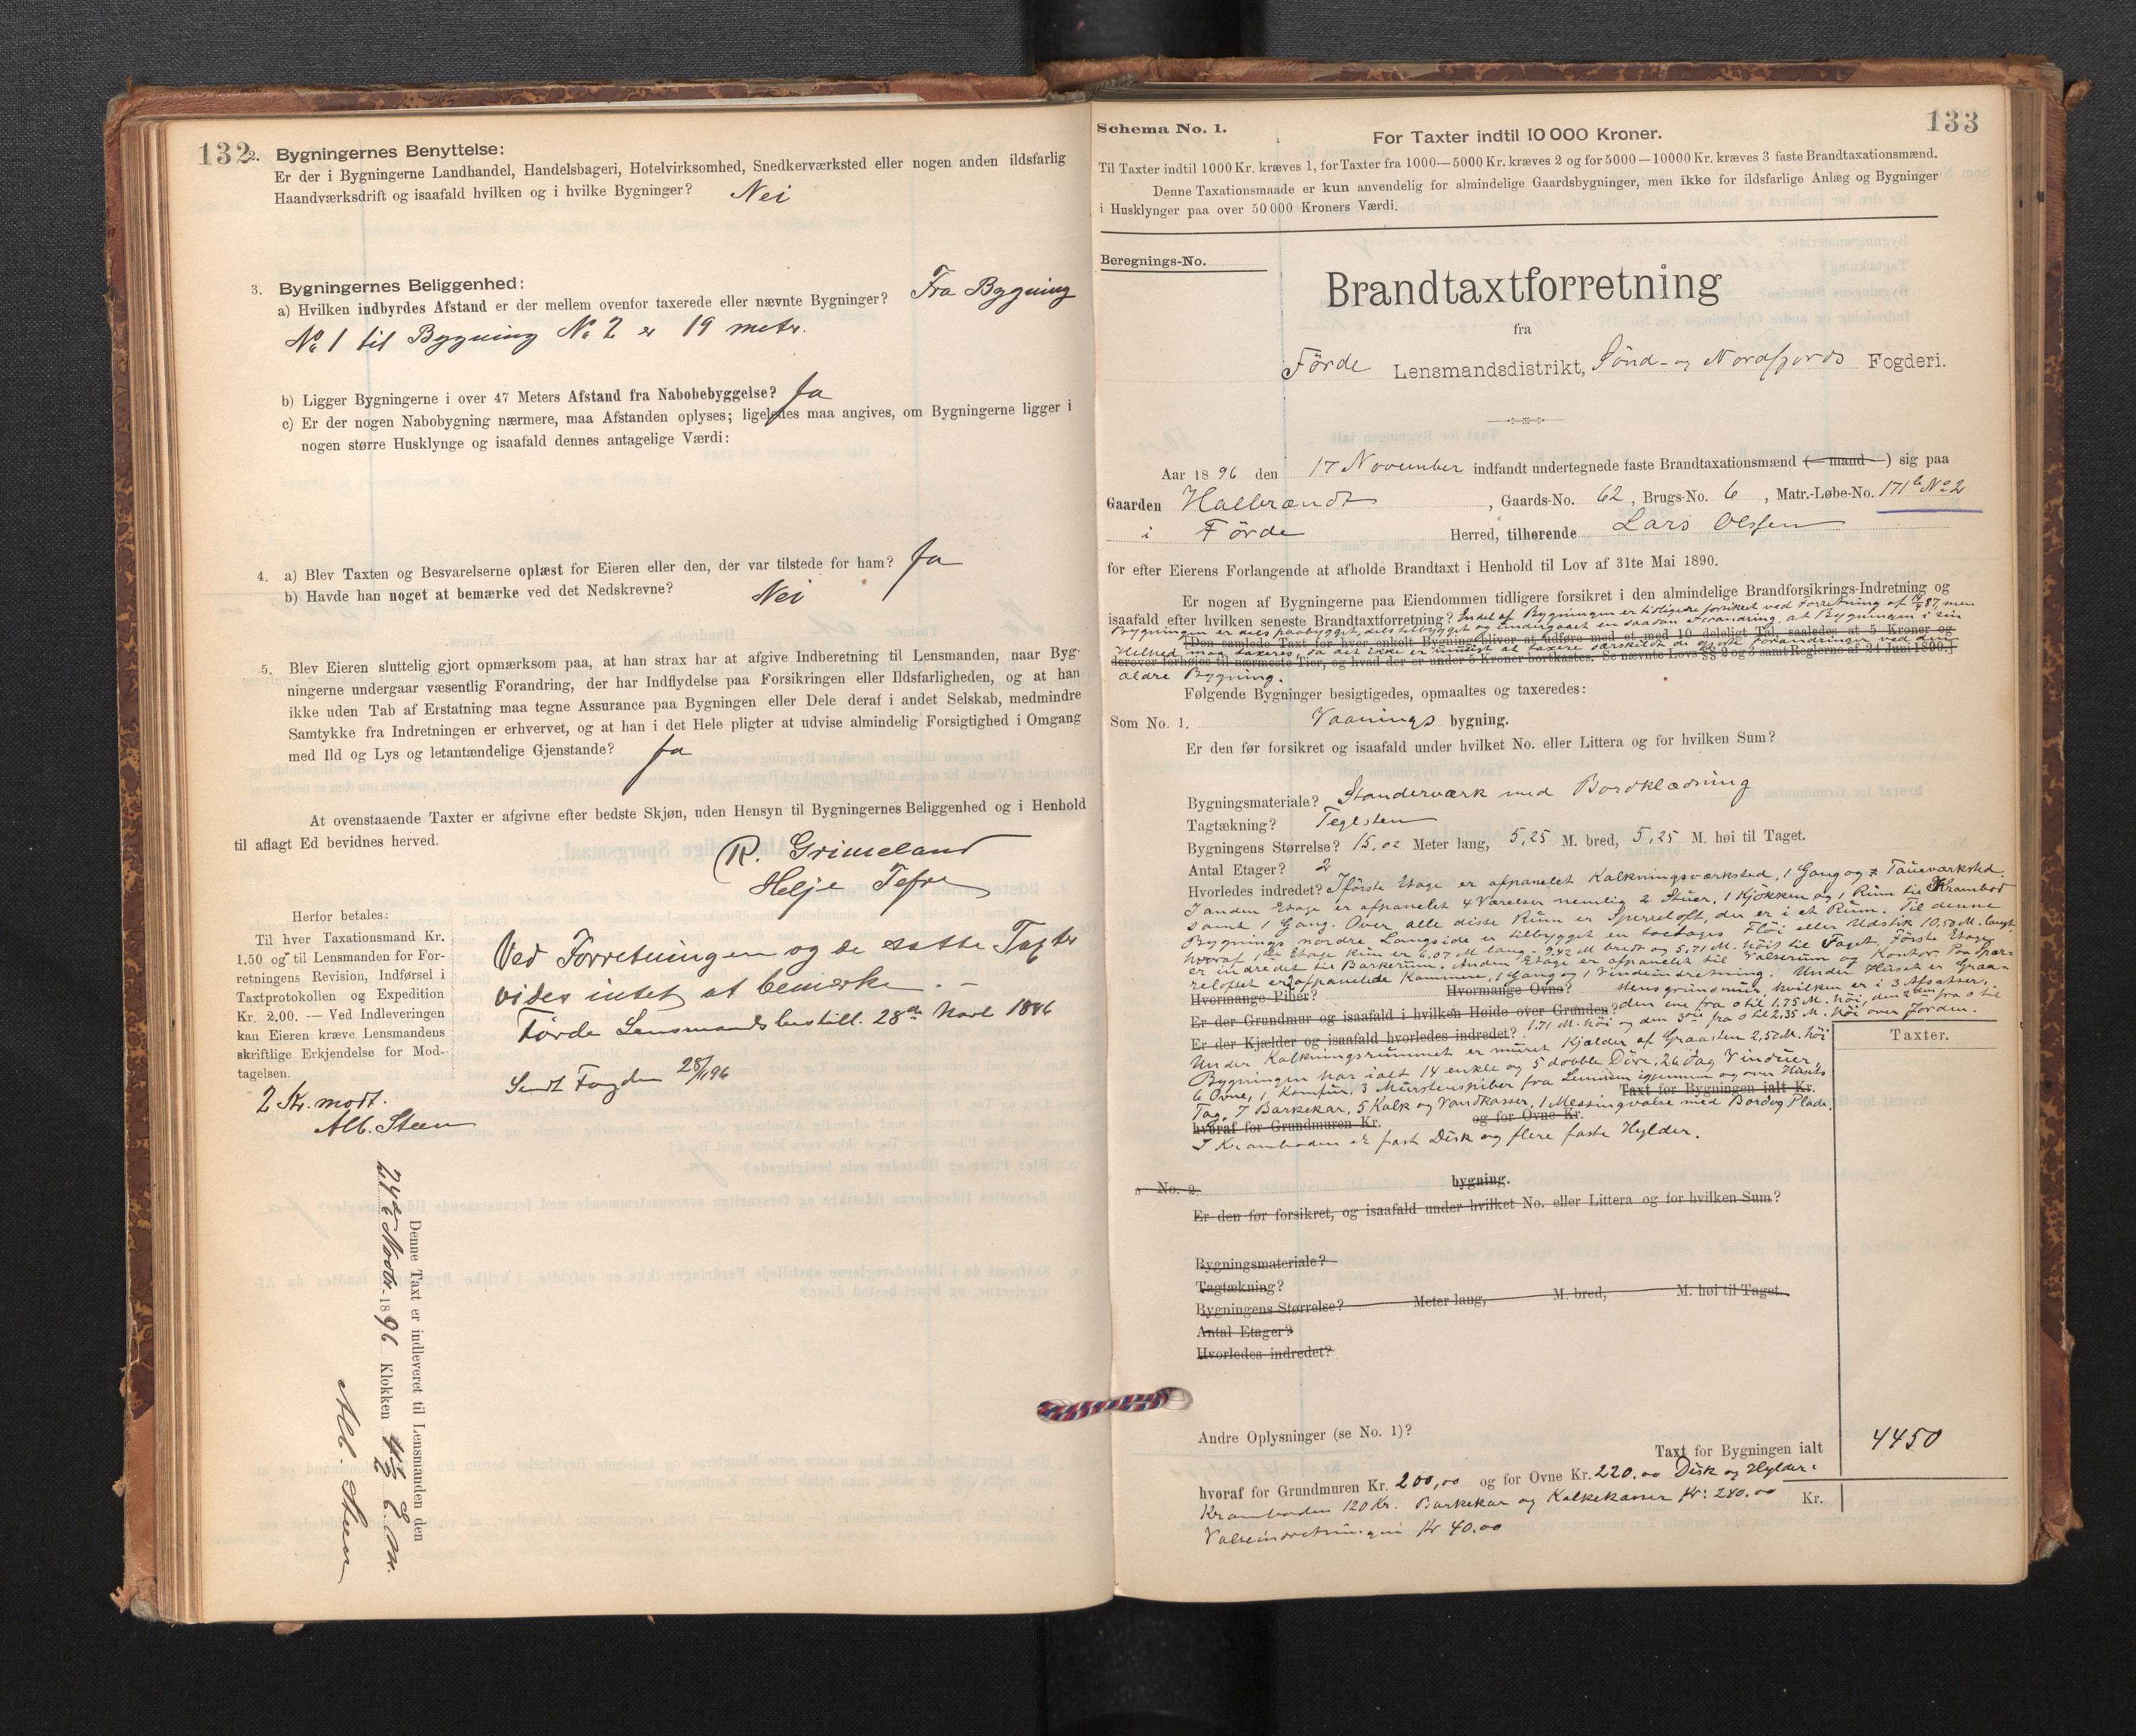 132
2. Bygningernes Benyttelse:
Er der i Bygningerne Landhandel, Handelsbageri, Hotelvirksomhed, Snedkerværksted eller nogen anden ildsfarlig
Haandværksdrift og isaafald hvilken og i hvilke Bygninger? Nei
3. Bygningernes Beliggenhed:
a) Hvilken indbyrdes Afstand er der mellem ovenfor taxerede eller nævnte Bygninger? Fra Bygning
No 1 til Bygning No 2 er 19 metr.
b) Ligger Bygningerne i over 47 Meters Afstand fra Nabobebyggelse? Ja
c) Er der nogen Nabobygning nærmere, maa Afstanden oplyses; ligeledes maa angives, om Bygningerne ligger i
nogen større Husklynge og isaafald dennes antagelige Værdi:
4. a) Blev Taxten og Besvarelserne oplæst for Eieren eller den, der var tilstede for ham? Ja
b) Havde han noget at bemærke ved det Nedskrevne? Nei
5. Blev Eieren sluttelig gjort opmærksom paa, at han strax har at afgive Indberetning til Lensmanden, naar Byg-
ningerne undergaar væsentlig Forandring, der har Indflydelse paa Forsikringen eller Ildsfarligheden, og at han
ikke uden Tab af Erstatning maa tegne Assurance paa Bygningen eller Dele deraf i andet Selskab, medmindre
Samtykke fra Indretningen er erhvervet, og at han i det Hele pligter at udvise almindelig Forsigtighed i Omgang
med Ild og Lys og letantændelige Gjenstande? Ja
At ovenstaaende Taxter er afgivne efter bedste Skjøn, uden Hensyn til Bygningernes Beliggenhed og i Henhold
til aflagt Ed bevidnes herved.
R. Grimeland
Helje Tefre
Herfor betales:
Til hver Taxationsmand Kr.
1.50 og til Lensmanden for For-
retningens Revision, Indførsel i
Taxtprotokollen og Expedition
Kr. 2.00. — Ved Indleveringen
kan Eieren kræve Lensmandens
skriftlige Erkjendelse for Mod-
tagelsen.
2 Kr. modt.
Alb. Steen
Ved Forretningen og de satte Taxter
vides intet at bemærke. —
Førde Lensmandsbestill. 28de Novb 1896
Sendt Fogden 28/11 96
Denne Taxt er indleveret til Lensmanden den
27de Novbr. 1896 Klokken 4 1/2 E. M.
Alb. Steen
133
Schema No. 1.
For Taxter indtil 10 000 Kroner.
Til Taxter indtil 1000 Kr. kræves 1, for Taxter fra 1000—5000 Kr. kræves 2 og for 5000—10000 Kr. kræves 3 faste Brandtaxationsmænd.
Denne Taxationsmaade er kun anvendelig for almindelige Gaardsbygninger, men ikke for ildsfarlige Anlæg og Bygninger
i Husklynger paa over 50 000 Kroners Værdi.
Beregnings-No.
Brandtaxtforretning
fra
Förde Lensmandsdistrikt, Sönd- og Nordfjords Fogderi.
Aar 1896 den 17 November indfandt undertegnede faste Brandtaxationsmænd (— mand —) sig paa
Gaarden Halbrændt, Gaards-No. 62, Brugs-No. 6, Matr.-Løbe-No. 171b No 2
i Förde Herred, tilhørende Lars Olssen
for efter Eierens Forlangende at afholde Brandtaxt i Henhold til Lov af 31te Mai 1890.
Er nogen af Bygningerne paa Eiendommen tidligere forsikret i den almindelige Brandforsikrings-Indretning og
isaafald efter hvilken seneste Brandtaxtforretning? Endel af Bygningen er tidligere forsikret ved Forretning af 87, men
Bygningen er dels paabygget, dels tilbygget og undergaaet en saadan Forandring, at Bygningen i sin
(Den samlede Taxt for hver enkelt Bygning bliver at udføre med et med 10 deleligt Tal, saaledes at 5 Kroner og
Helhed maa taxeres, da det ikke er muligt at taxere særskildt de gjorte Forandringer ved den
derover forhøies til nærmeste Tier, og hvad der er under 5 Kroner bortkastes. Se nævnte Lovs §§ 2 og 3 samt Reglerne af 24 Juni 1890.)
ældre Bygning.
Følgende Bygninger besigtigedes, opmaaltes og taxeredes:
Som No. 1. Vaanings bygning.
Er den før forsikret og isaafald under hvilket No. eller Littera og for hvilken Sum?
Bygningsmateriale? Standerværk med Bordklædning
Tagtækning? Teglsten
Bygningens Størrelse? 15,02 Meter lang, 5,25 M. bred, 5,25 M. høi til Taget.
Antal Etager? 2
Hvorledes indredet? I förste Etage er afpanelet Kalkningsværksted, 1 Gang og Taueværksted.
I anden Etage er afpanelet 4 Værelser nemlig 2 Stuer, 1 Kjökken og 1 Rum til Krambod
samt 1 Gang. Over alle disse Rum er Spereloft, der er i et Rum. Til denne
Bygnings nordre Langside er tilbygget en toetages Flöi eller Udstik 10,50 M. langt,
hvoraf 1ste Etage Rum er 6,07 M lang - 9,42 M bredt og 5,71 M. höit til Taget. Förste Etage
er indredet til Barkerum. Anden Etage er afpanelet til Valserum og Kontor. Paa Spær-
reloftet er 2 afpanelede Kammere, 1 Gang og 1 Vindeindretning. Under Huset er Graa-
Hvormange Piber? Hvormange Ovne? stensgrundmur, hvilken er i 3 Afsatser,
Er der Grundmur og isaafald i hvilken Høide over Grunden? den ene fra 0 til 1,75 M. höi, den 2den fra 0 til
Er der Kjælder og isaafald hvorledes indredet? 1,71 M. höi og den 3die fra 0 til 2,35 M. höi over Jorden.
Taxter.
Under Kalkningsrummet er muret Kjælder af Graasten 2,57 M. höi
Bygningen har ialt 14 enkle og 5 dobble Döre, 26 Fag Vinduer,
6 Ovne, 1 Komfur, 3 Murstenspiber fra Lunnen igjennem og over Husets
Taxt for Bygningen ialt Kr.
Tag. 7 Barkekar, 5 Kalk og Vandkasser, 1 Messingvalse med Bord og Plade.
hvoraf for Grundmuren Kr. og for Ovne Kr.
I Kramboden er fast Disk og flere faste Hylder.
» No. 2. bygning.
Er den før forsikret, og isaafald under hvilket No. eller Littera og for hvilken Sum?
Bygningsmateriale?
Tagtækning?
Bygningens Størrelse? Meter lang, M. bred, M. høi til Taget.
Antal Etager?
Hvorledes indredet?
Andre Oplysninger (se No. 1)?
Taxt for Bygningen ialt 4450
hvoraf for Grundmuren Kr. 200,00 og for Ovne Kr. 220.00 Disk og Hylder i
Kramboden 120 Kr. Barkekar og Kalkekasser Kr: 240.00 Kr.
Valseindretningen Kr 40.00